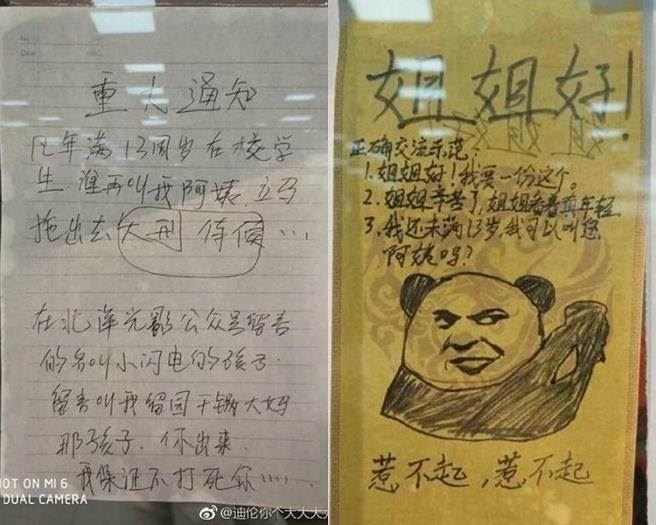 重大通知
凡年满13周岁在校学
生 谁再叫我阿姨,立马
拖出去大刑伺候…
在北洋光影公众号留言
的名叫小闪电的孩子.
留言叫我留园干锅大妈
那孩子.你出来.
我保证不打死你……
HOT ON MI 6
DUAL CAMERA
@迪伦你个大大大
姐姐好!
正确交流示范:
1.姐姐好!我要一份这个。
2.姐姐辛苦了,姐姐看着真年轻
3.我还未满13岁,我可以叫您
阿姨吗?
惹不起,惹不起